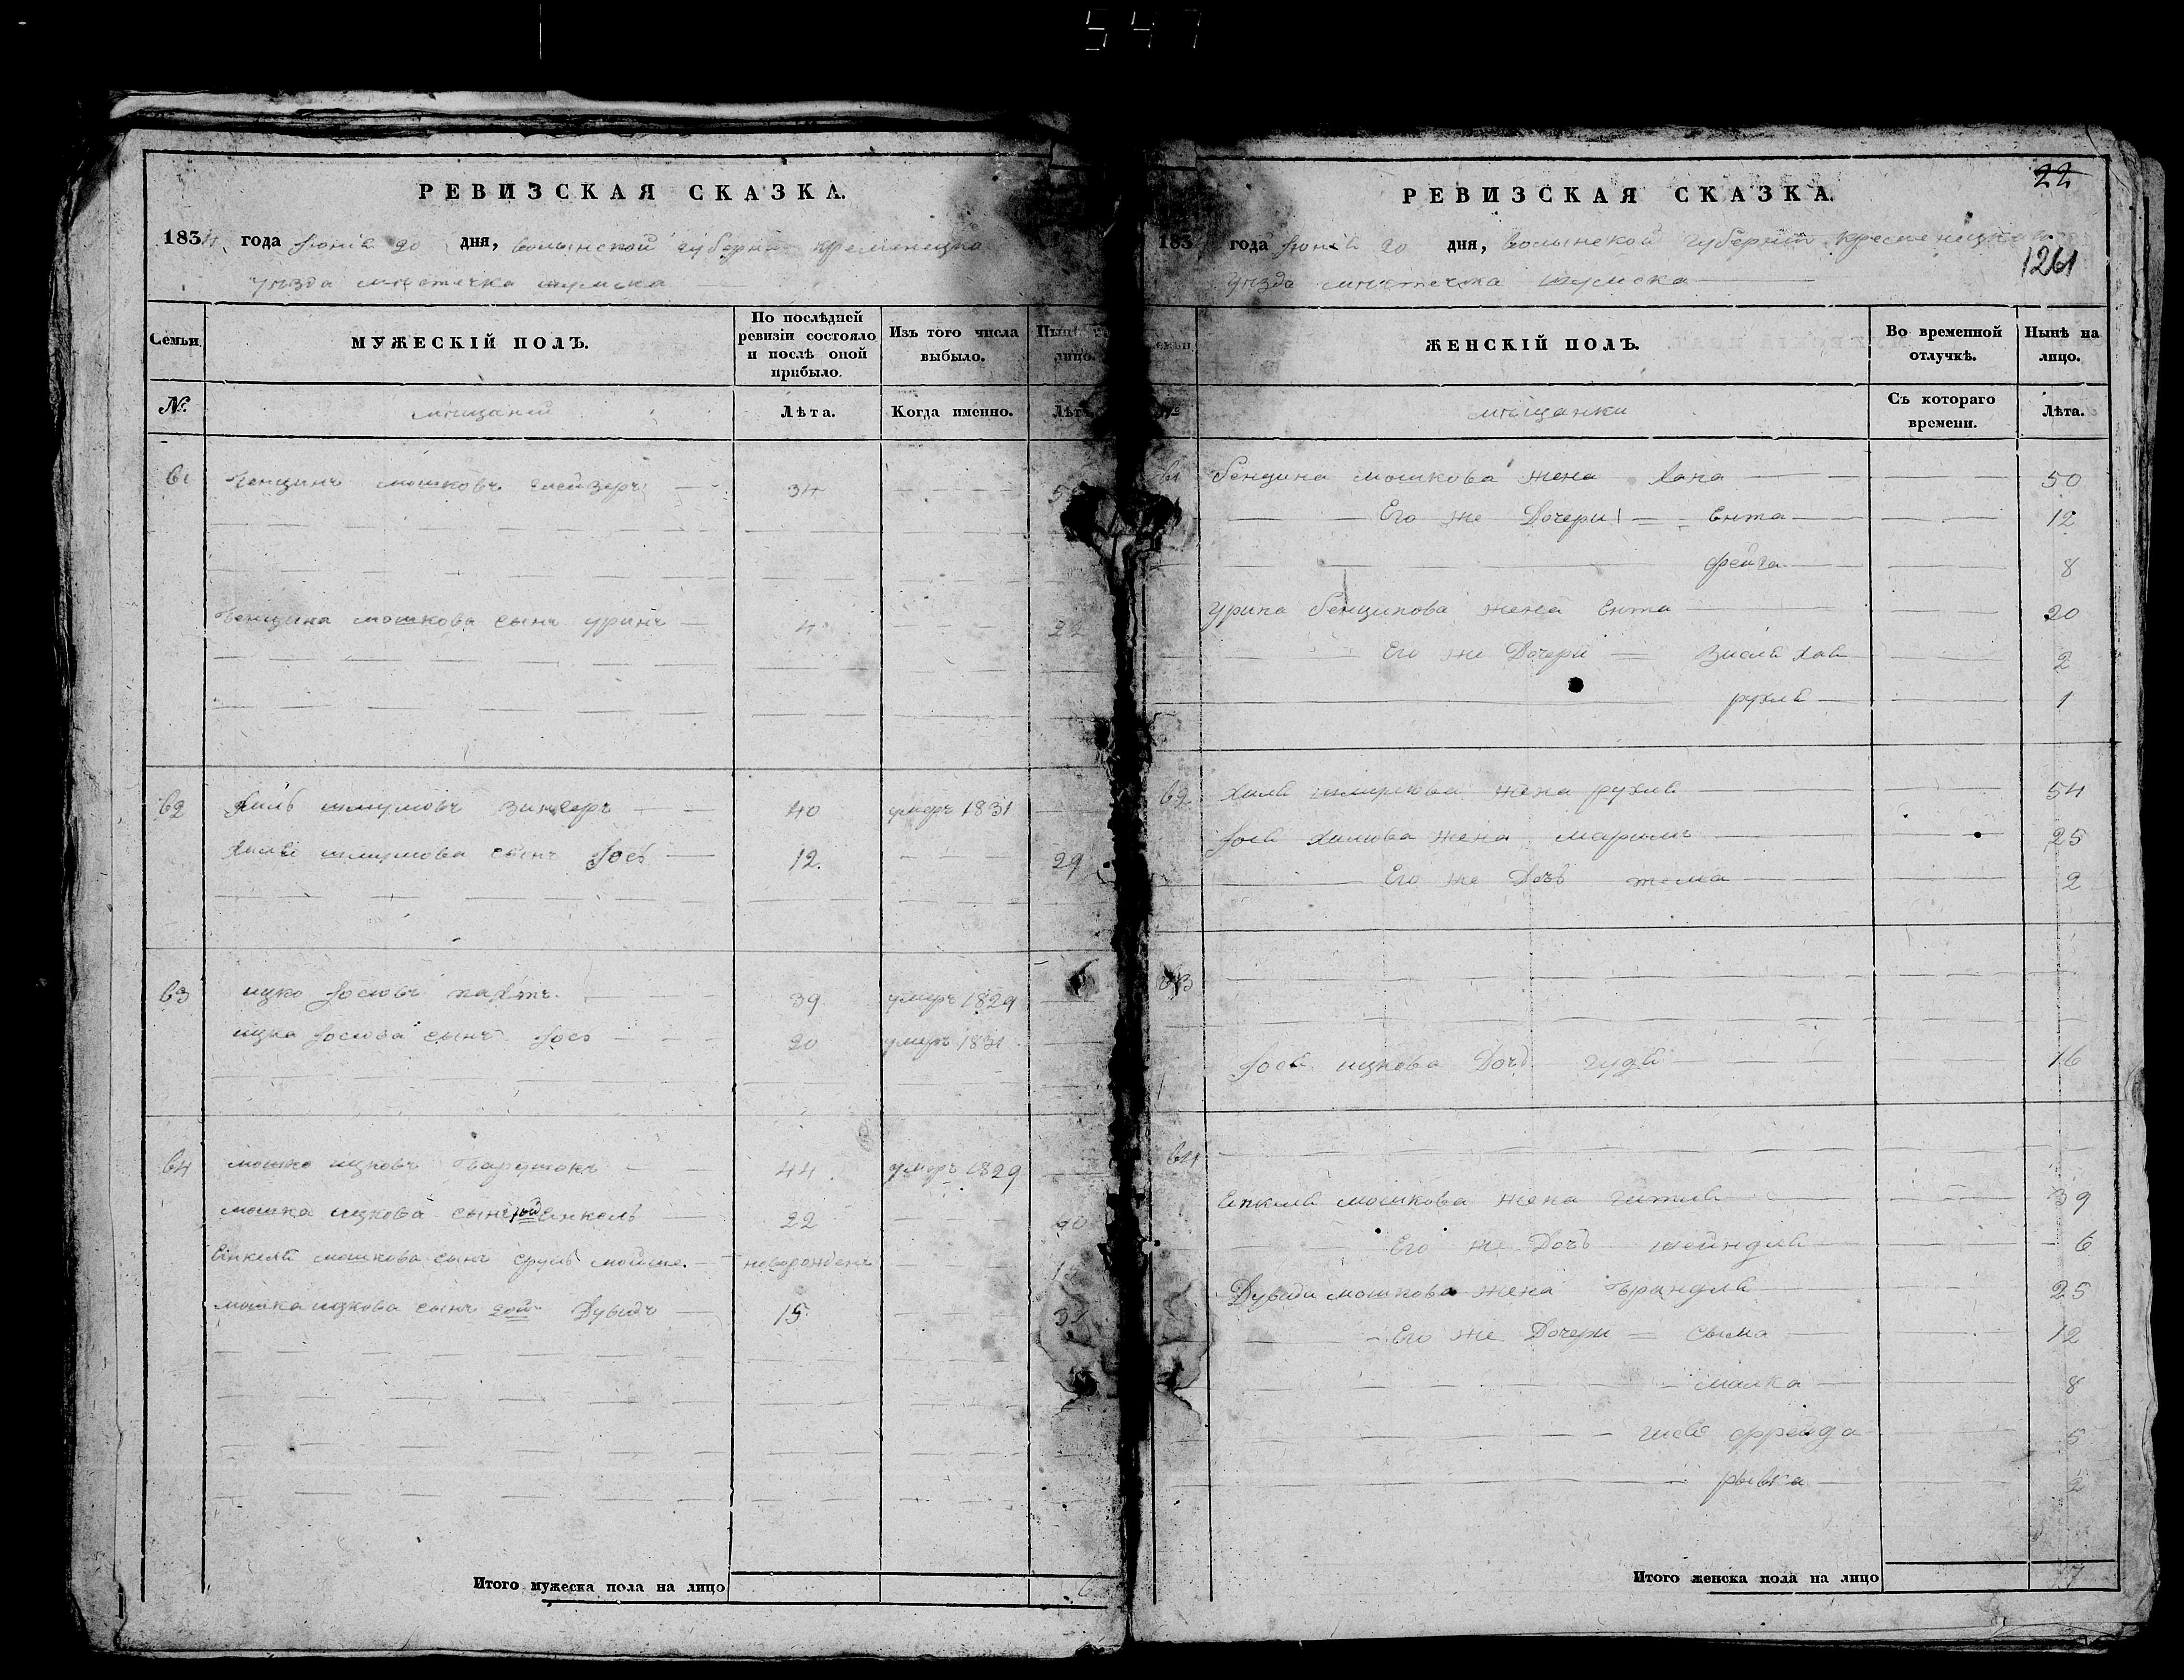 547
РЕВИЗСКАЯ СКАЗКА.
1834 года Іюня 20 дня, волынской губерни кременецко
уезда местечка шумска
Семьи.
МУЖЕСКІЙ ПОЛЪ.
По послѣдней ревизіи состояло и послѣ оной прибыло.
Изъ того числа выбыло.
Нынѣ на лицо.
№.
мещаней
Лѣта.
Когда именно.
Лѣта
61 Бенцинъ мошковъ 34
Бенцина мошкова сынъ уринъ 4 22
62 Хиль шмулювъ 40 умеръ 1831
Хиля шмулюва сынъ Іось 12. 29
63 ицко Іосювъ 39 умеръ 1829
ицка Іосюва сынъ Іось 20 умеръ 1831
64 мошко ицковъ 44 умеръ 1829
мошка ицкова сынъ 1ый Янкель 22 40
Янкеля мошкова сынъ сруль мойше. новорожденъ
мошка ицкова сынъ 2ой Дувидъ 15
Итого мужеска пола на лицо
22
1261
РЕВИЗСКАЯ СКАЗКА.
183 года Іюня 20 дня, волынской губерніи кременецкого
уезда местечка шумска
ЖЕНСКІЙ ПОЛЪ.
Во временной отлучкѣ.
Нынѣ на лицо.
мещанки
Съ котораго времени.
Лѣта.
61 бенцина мошкова жена Хана 50
Его же Дочери Ента 12
фейга 8
урина бенцинова жена Ента 20
Его же Дочери Хая 2
рухля 1
62 Хиля шмулюва жена рухля 54
Іося Хилюва жена марьямъ 25
Его же Дочь 2
63
Іося ицкова Дочь 16
64
Янкеля мошкова жена гитля 39
Его же Дочь шейндля 6
Дувида мошкова жена Брандля 25
Его же Дочери сыма 12
малка 8
фрейда 5
рывка 2
Итого женска пола на лицо